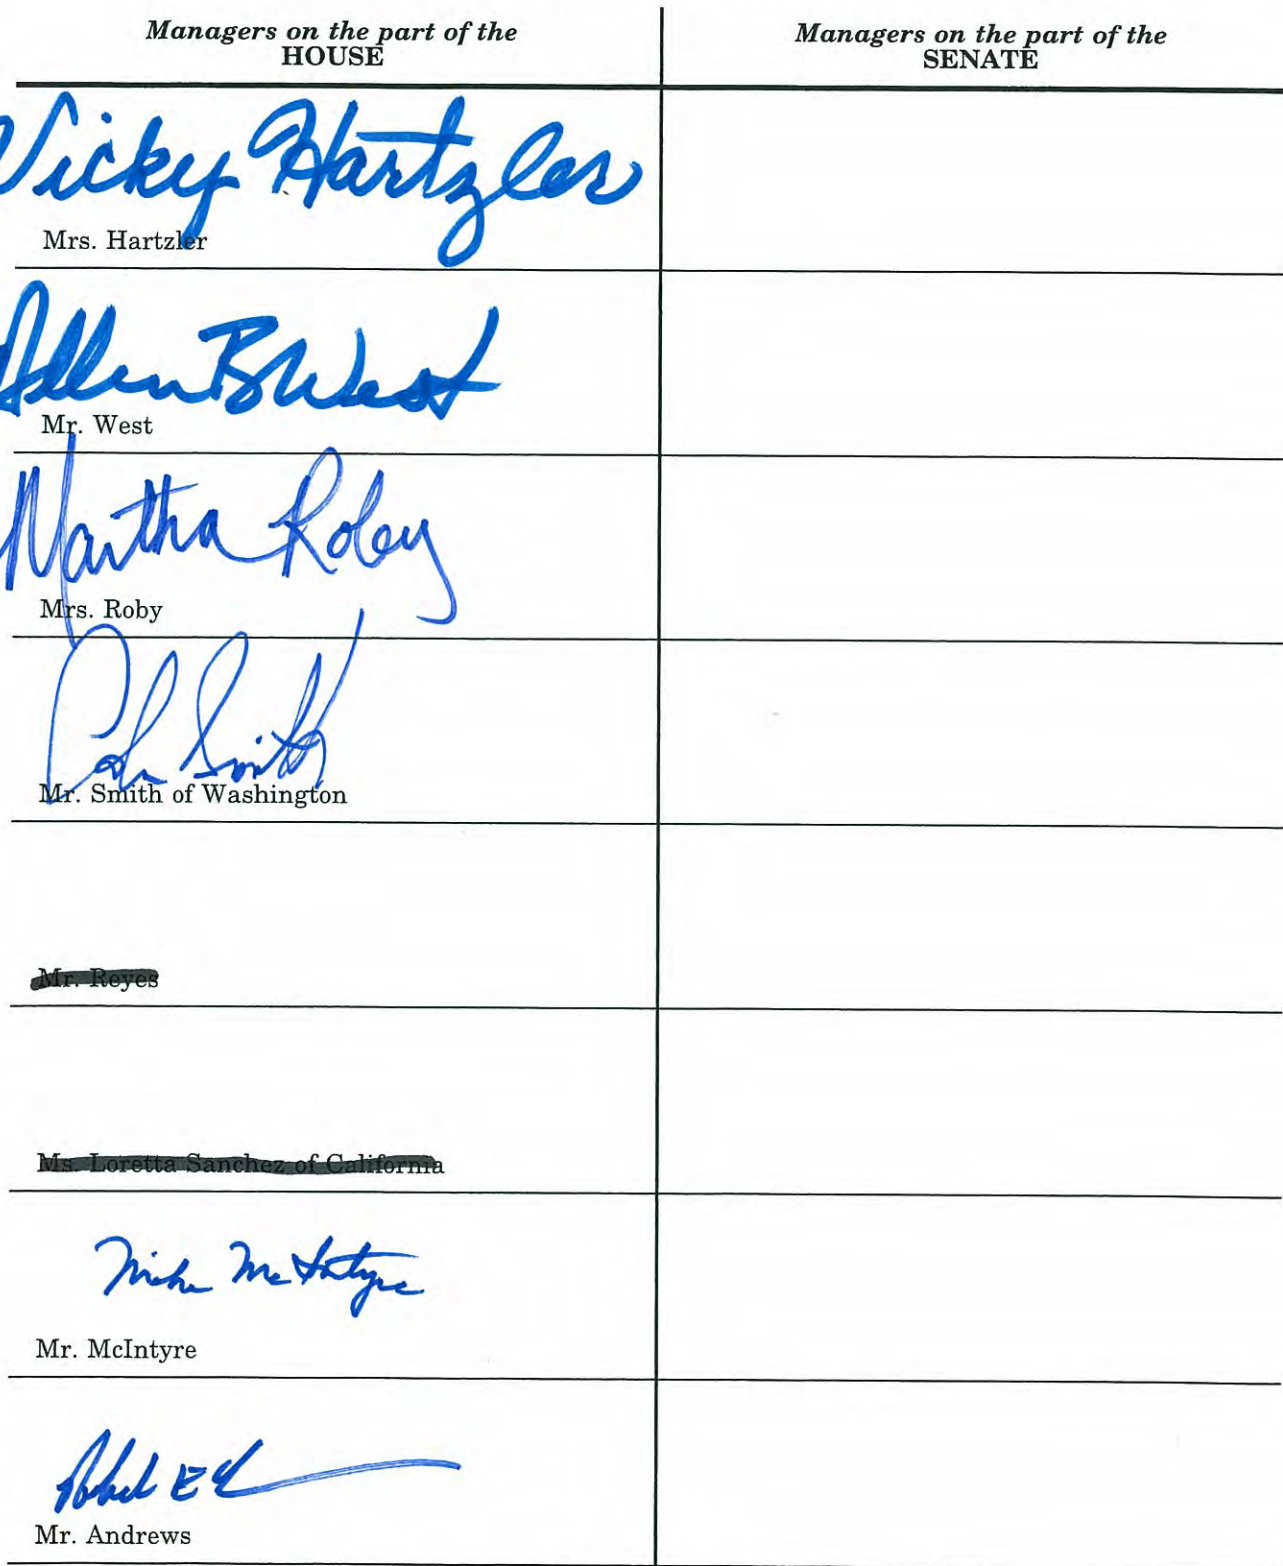 Managers on the part of the
HOUSE
Managers on the part of the
SENATE
Vicky Hartzler
Mrs. Hartzler
Allen B West
Mr. West
Martha Roby
Mrs. Roby
Smith
Mr. Smith of Washington
Mr. Reyes
Ms. Loretta Sanchez of California
Mike McIntyre
Mr. McIntyre
Robert E
Mr. Andrews